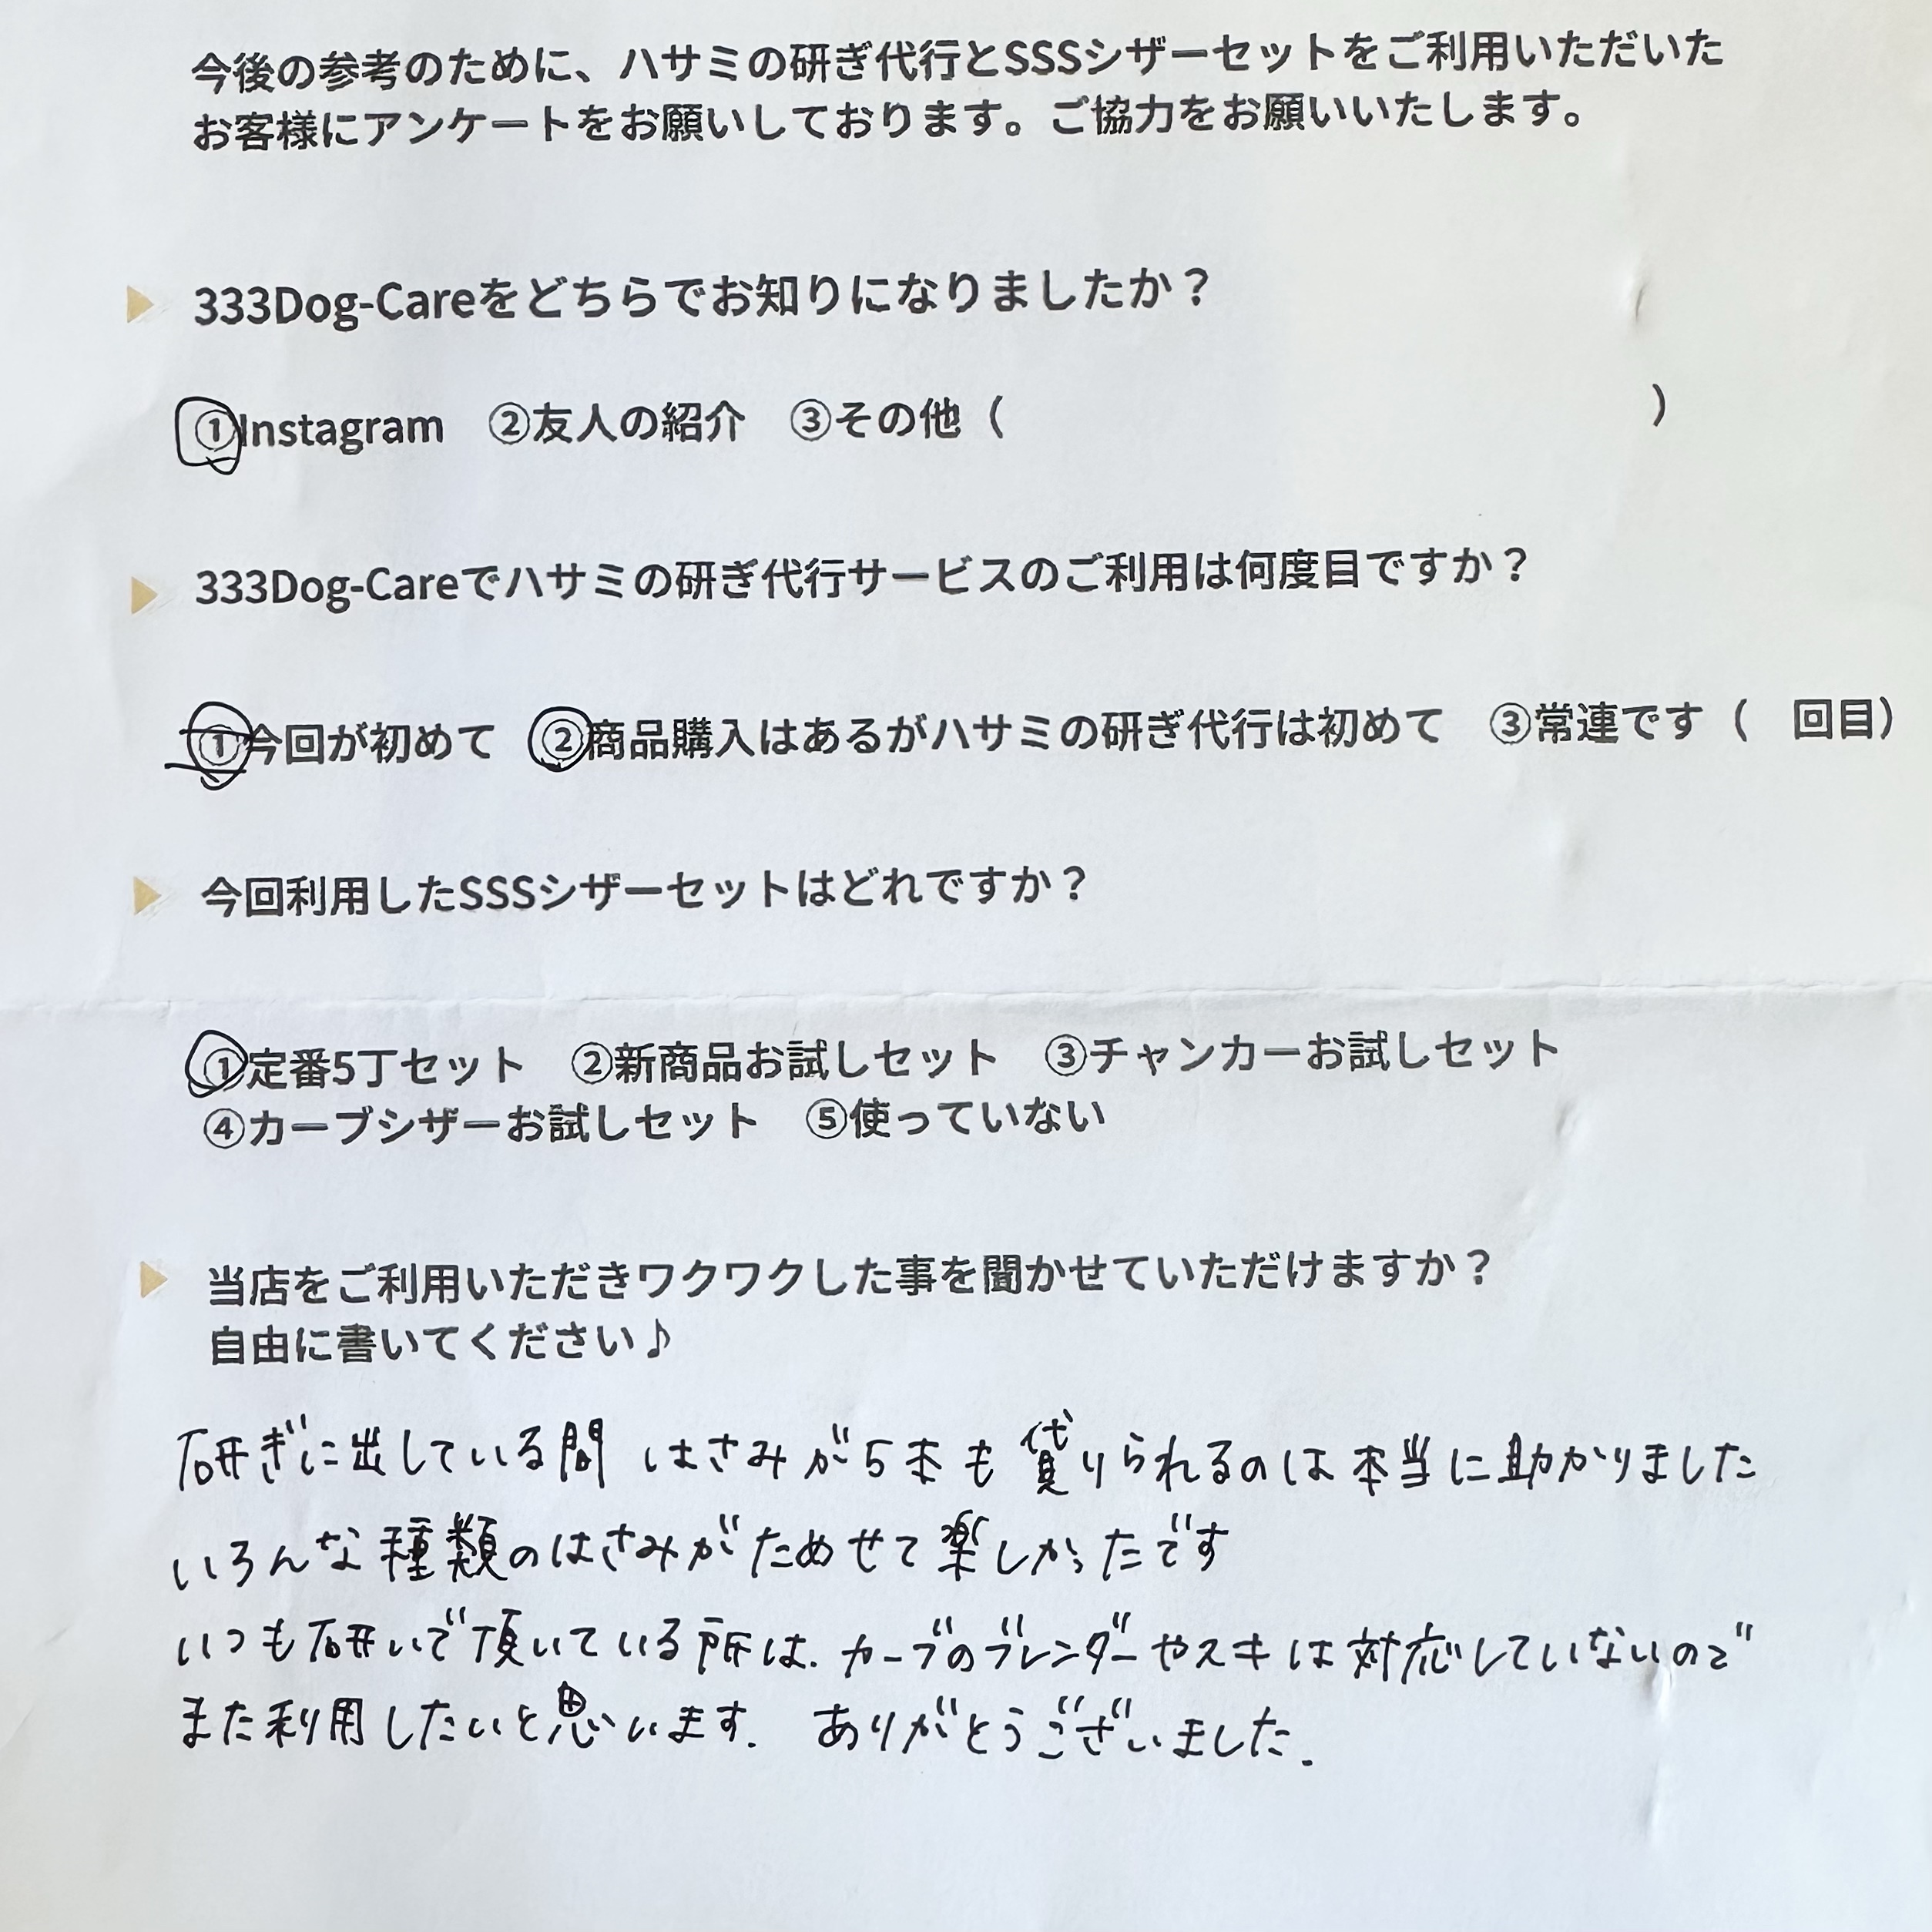 今後の参考のために、ハサミの研ぎ代行とSSSシザーセットをご利用いただいた
お客様にアンケートをお願いしております。ご協力をお願いいたします。
333Dog-Careをどちらでお知りになりましたか？
①Instagram　②友人の紹介　③その他（　　　　　　　　　　　　　　　）
333Dog-Careでハサミの研ぎ代行サービスのご利用は何度目ですか？
①今回が初めて　②商品購入はあるがハサミの研ぎ代行は初めて　③常連です（　回目）
今回利用したSSSシザーセットはどれですか？
①定番5丁セット　②新商品お試しセット　③チャンカーお試しセット
④カーブシザーお試しセット　⑤使っていない
当店をご利用いただきワクワクした事を聞かせていただけますか？
自由に書いてください♪
研ぎに出している間　はさみが5本も貸りられるのは本当に助かりました
いろんな種類のはさみがためせて楽しかったです
いつも研いで頂いている所は．カーブのブレンダーやスキは対応していないので
また利用したいと思います．　ありがとうございました．